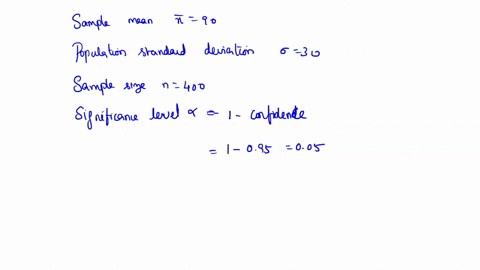 Sample mean x̄ = 90
Population standard deviation σ = 30
Sample size n = 400
Significance level α = 1 - confidence
= 1 - 0.95 = 0.05